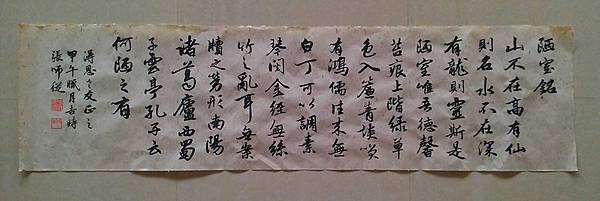 陋室銘
山不在高有仙
則名水不在深
有龍則靈斯是
陋室唯吾德馨
苔痕上階綠草
色入簾青談笑
有鴻儒往來無
白丁可以調素
琴閱金經無絲
竹之亂耳無案
牘之勞形南陽
諸葛廬西蜀
子雲亭孔子云
何陋之有
得恩之友正之
甲午臘月吉時
張師從